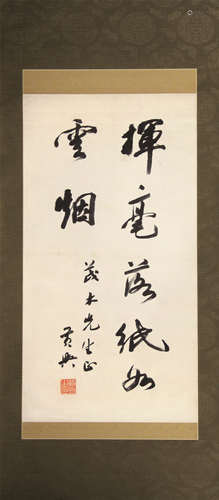 揮毫落紙如
雲烟
茂木先生正
黃興